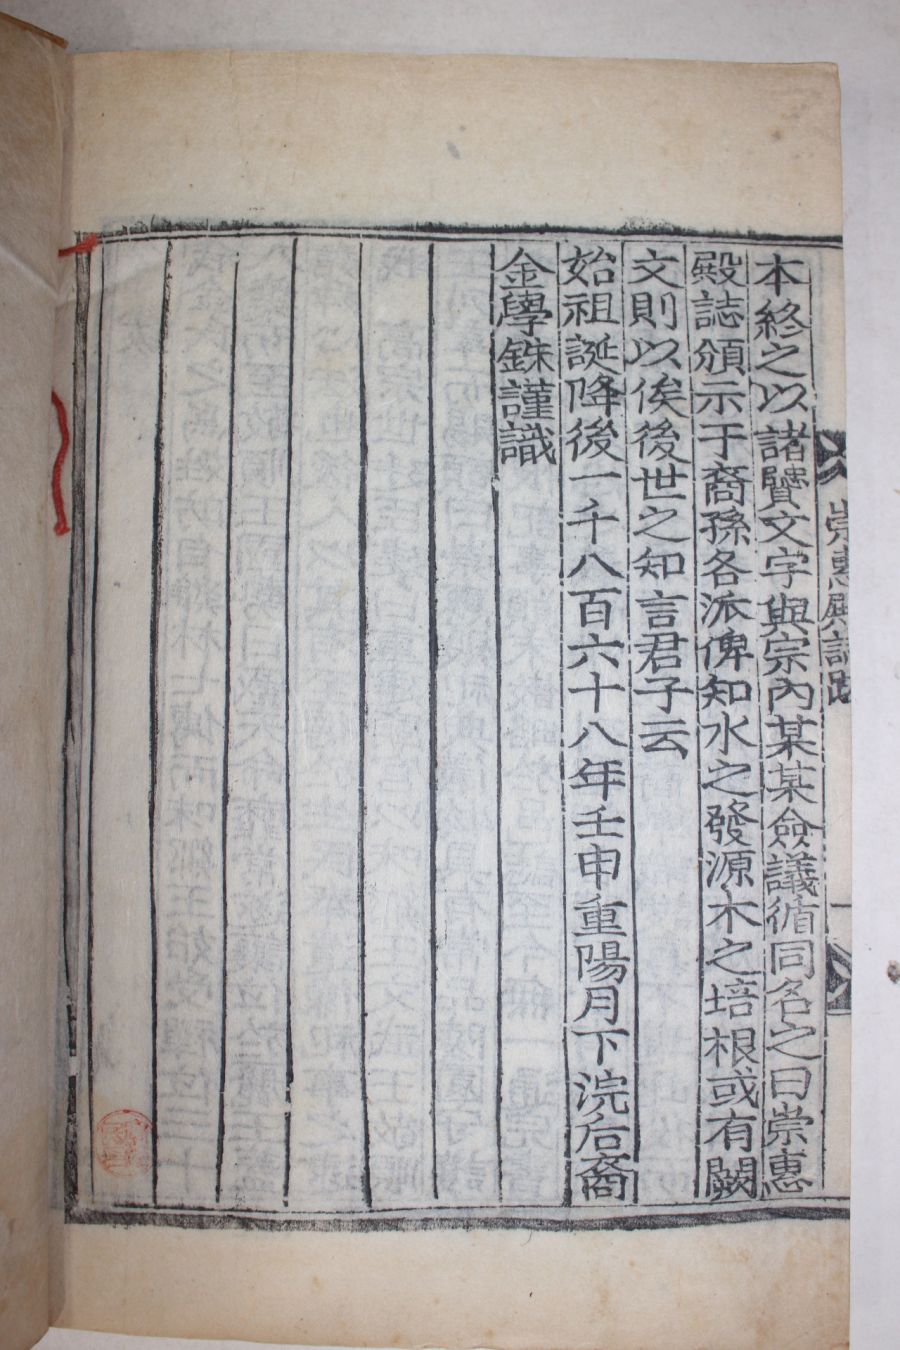 本終之以諸贒文字與宗內某某僉議循同名之曰崇惠
殿誌頒示于裔孫各派俾知水之發源木之培根或有闕
文則以俟後世之知言君子云
始祖誕降後一千八百六十八年壬申重陽月下浣后裔
金學銖謹識
崇惠殿誌跋
一